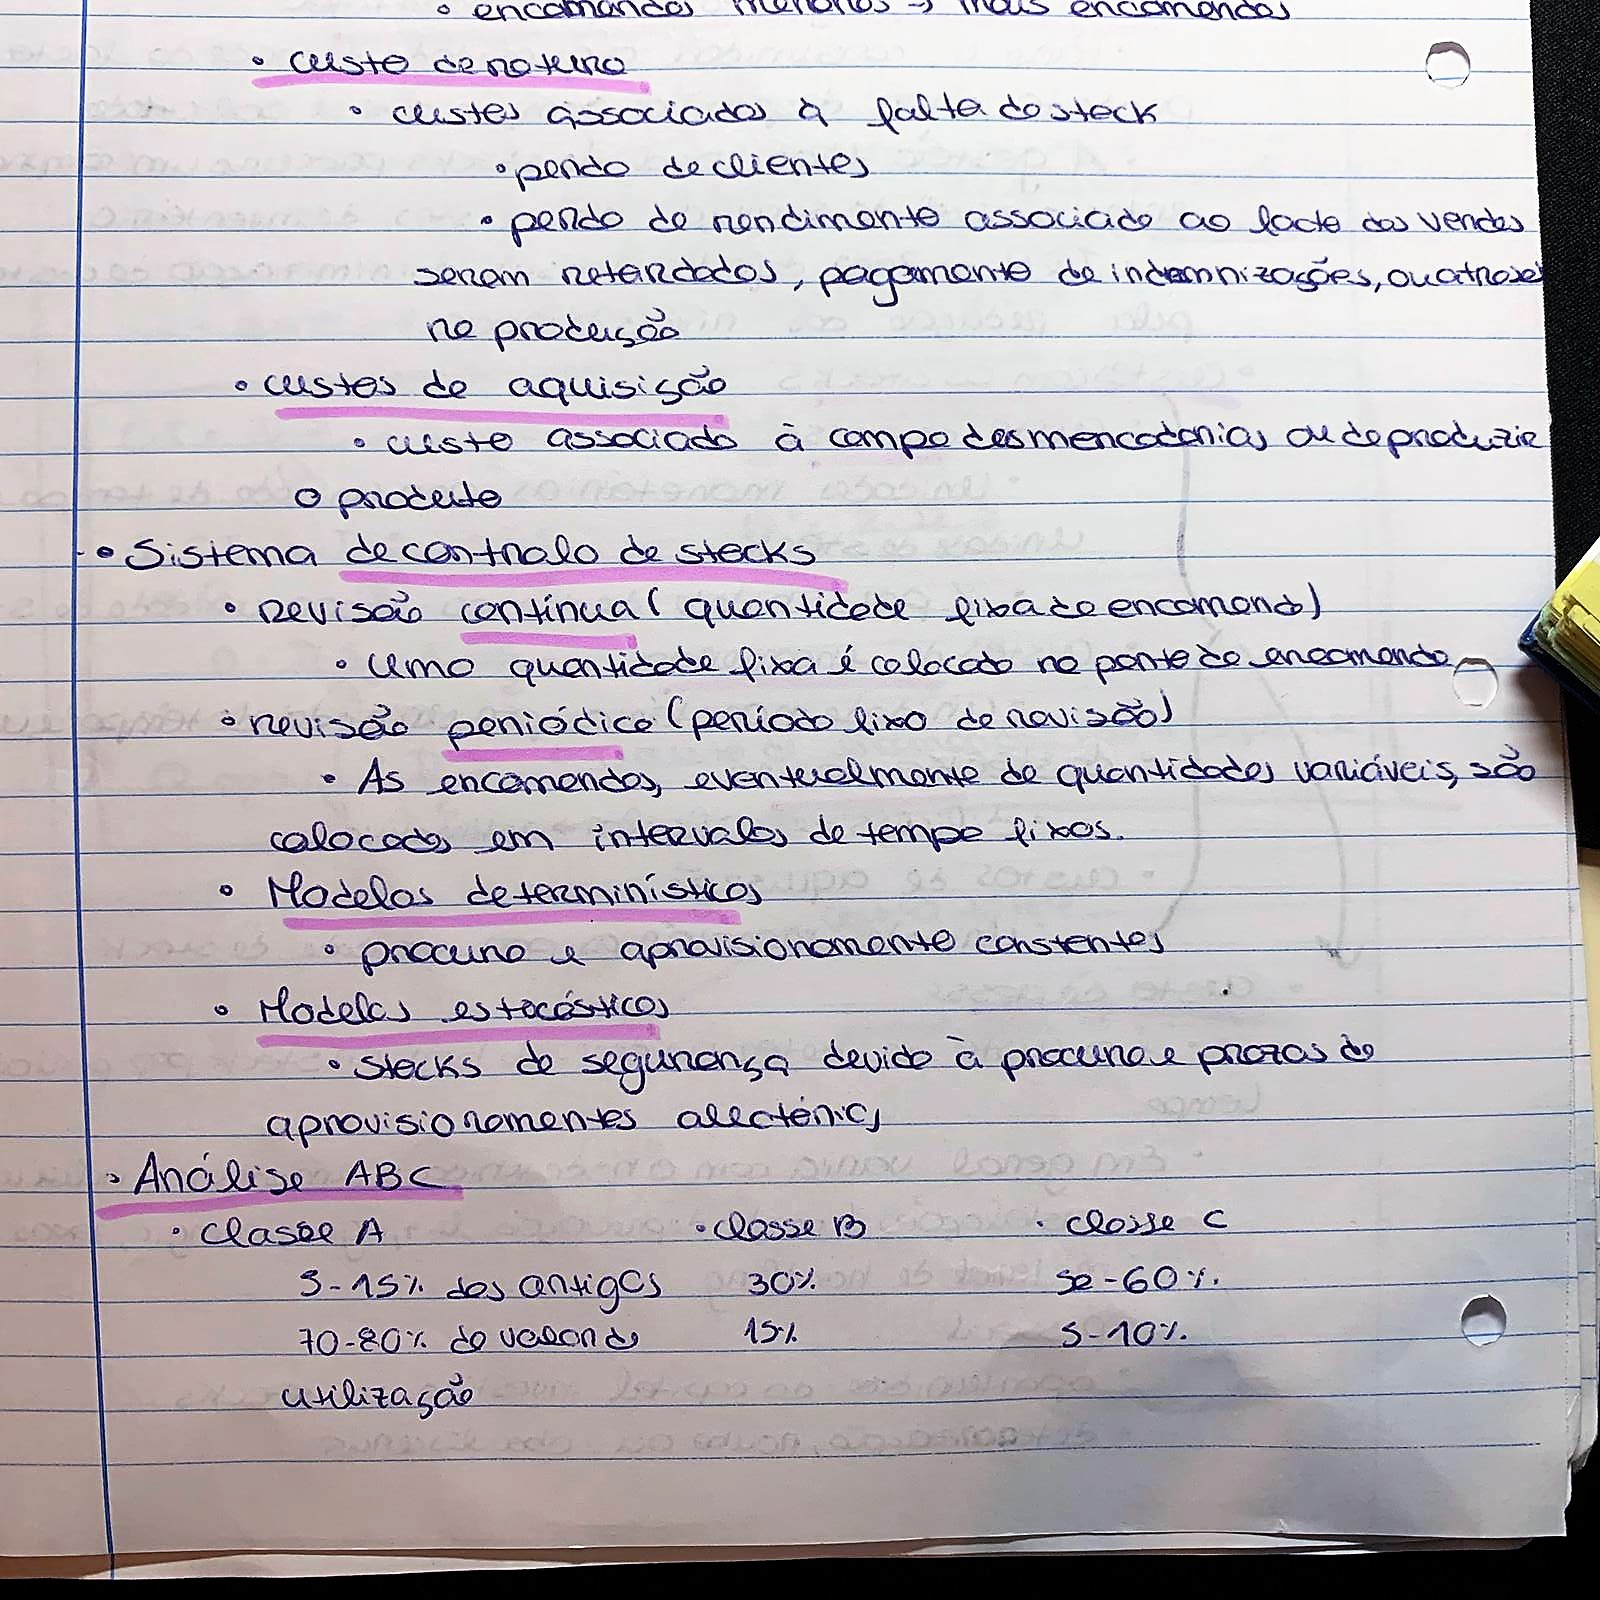 • encomendas menores → mais encomendas
• custo de rotura
• custos associados à falta de stock
• perda de clientes
• perda de rendimento associado ao facto das vendas
serem retardadas, pagamento de indemnizações, ou atrasos
na produção
• custos de aquisição
• custo associado à compra das mercadorias ou de produzir
o produto
• Sistema de controlo de stocks
• revisão contínua (quantidade fixa de encomenda)
• uma quantidade fixa é colocada no ponto de encomenda
• revisão periódica (período fixo de revisão)
• As encomendas, eventualmente de quantidades variáveis, são
colocadas em intervalos de tempo fixos.
• Modelos determinísticos
• procura e aprovisionamento constantes
• Modelos estocásticos
• stocks de segurança devido à procura e prazos de
aprovisionamentos aleatórios
• Análise ABC
• Classe A • Classe B • Classe C
5-15% dos artigos 30% 50-60%
70-80% do valor de 15% 5-10%
utilização